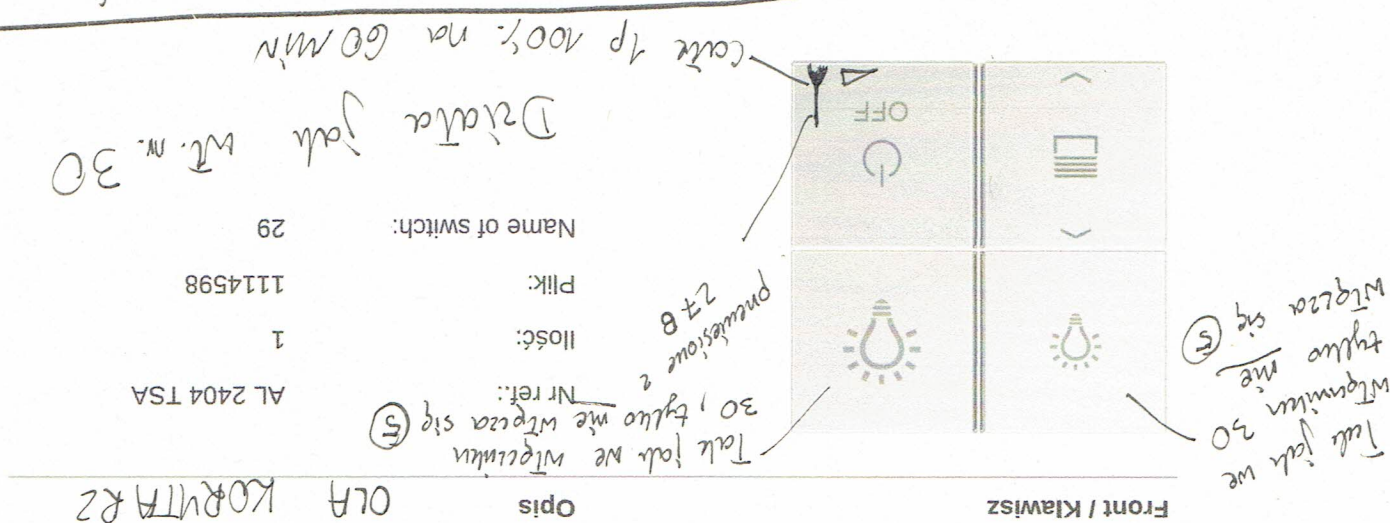 Front / Klawisz
Opis
OLA KORYTARZ
Tak jak we
włączniku 30
tylko nie
włącza się ⑤
Tak jak we włączniku
30, tylko nie włącza się ⑤
Nr ref.: AL 2404 TSA
Ilość: 1
Plik: 1114598
Name of switch: 29
przeniesione z
27B
OFF
Działa jak wł. nr. 30
Całe 1p 100% na 60 MIN